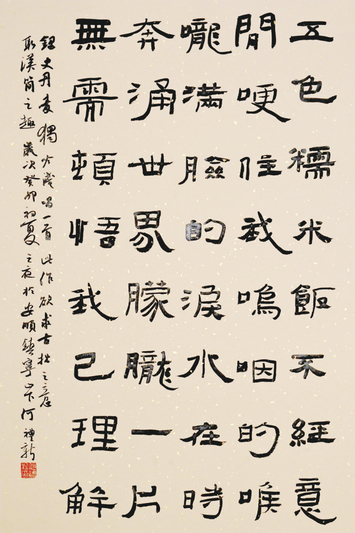 五色糯米飯不經意
間哽住我嗚咽的喉
嚨滿臉的淚水在時
奔涌世界朦朧一片
無需頓悟我已理解
獨 一首此作欲求古拙之意
取漢簡之趣歲次癸卯初夏之夜於安順鎮寧 何禮新